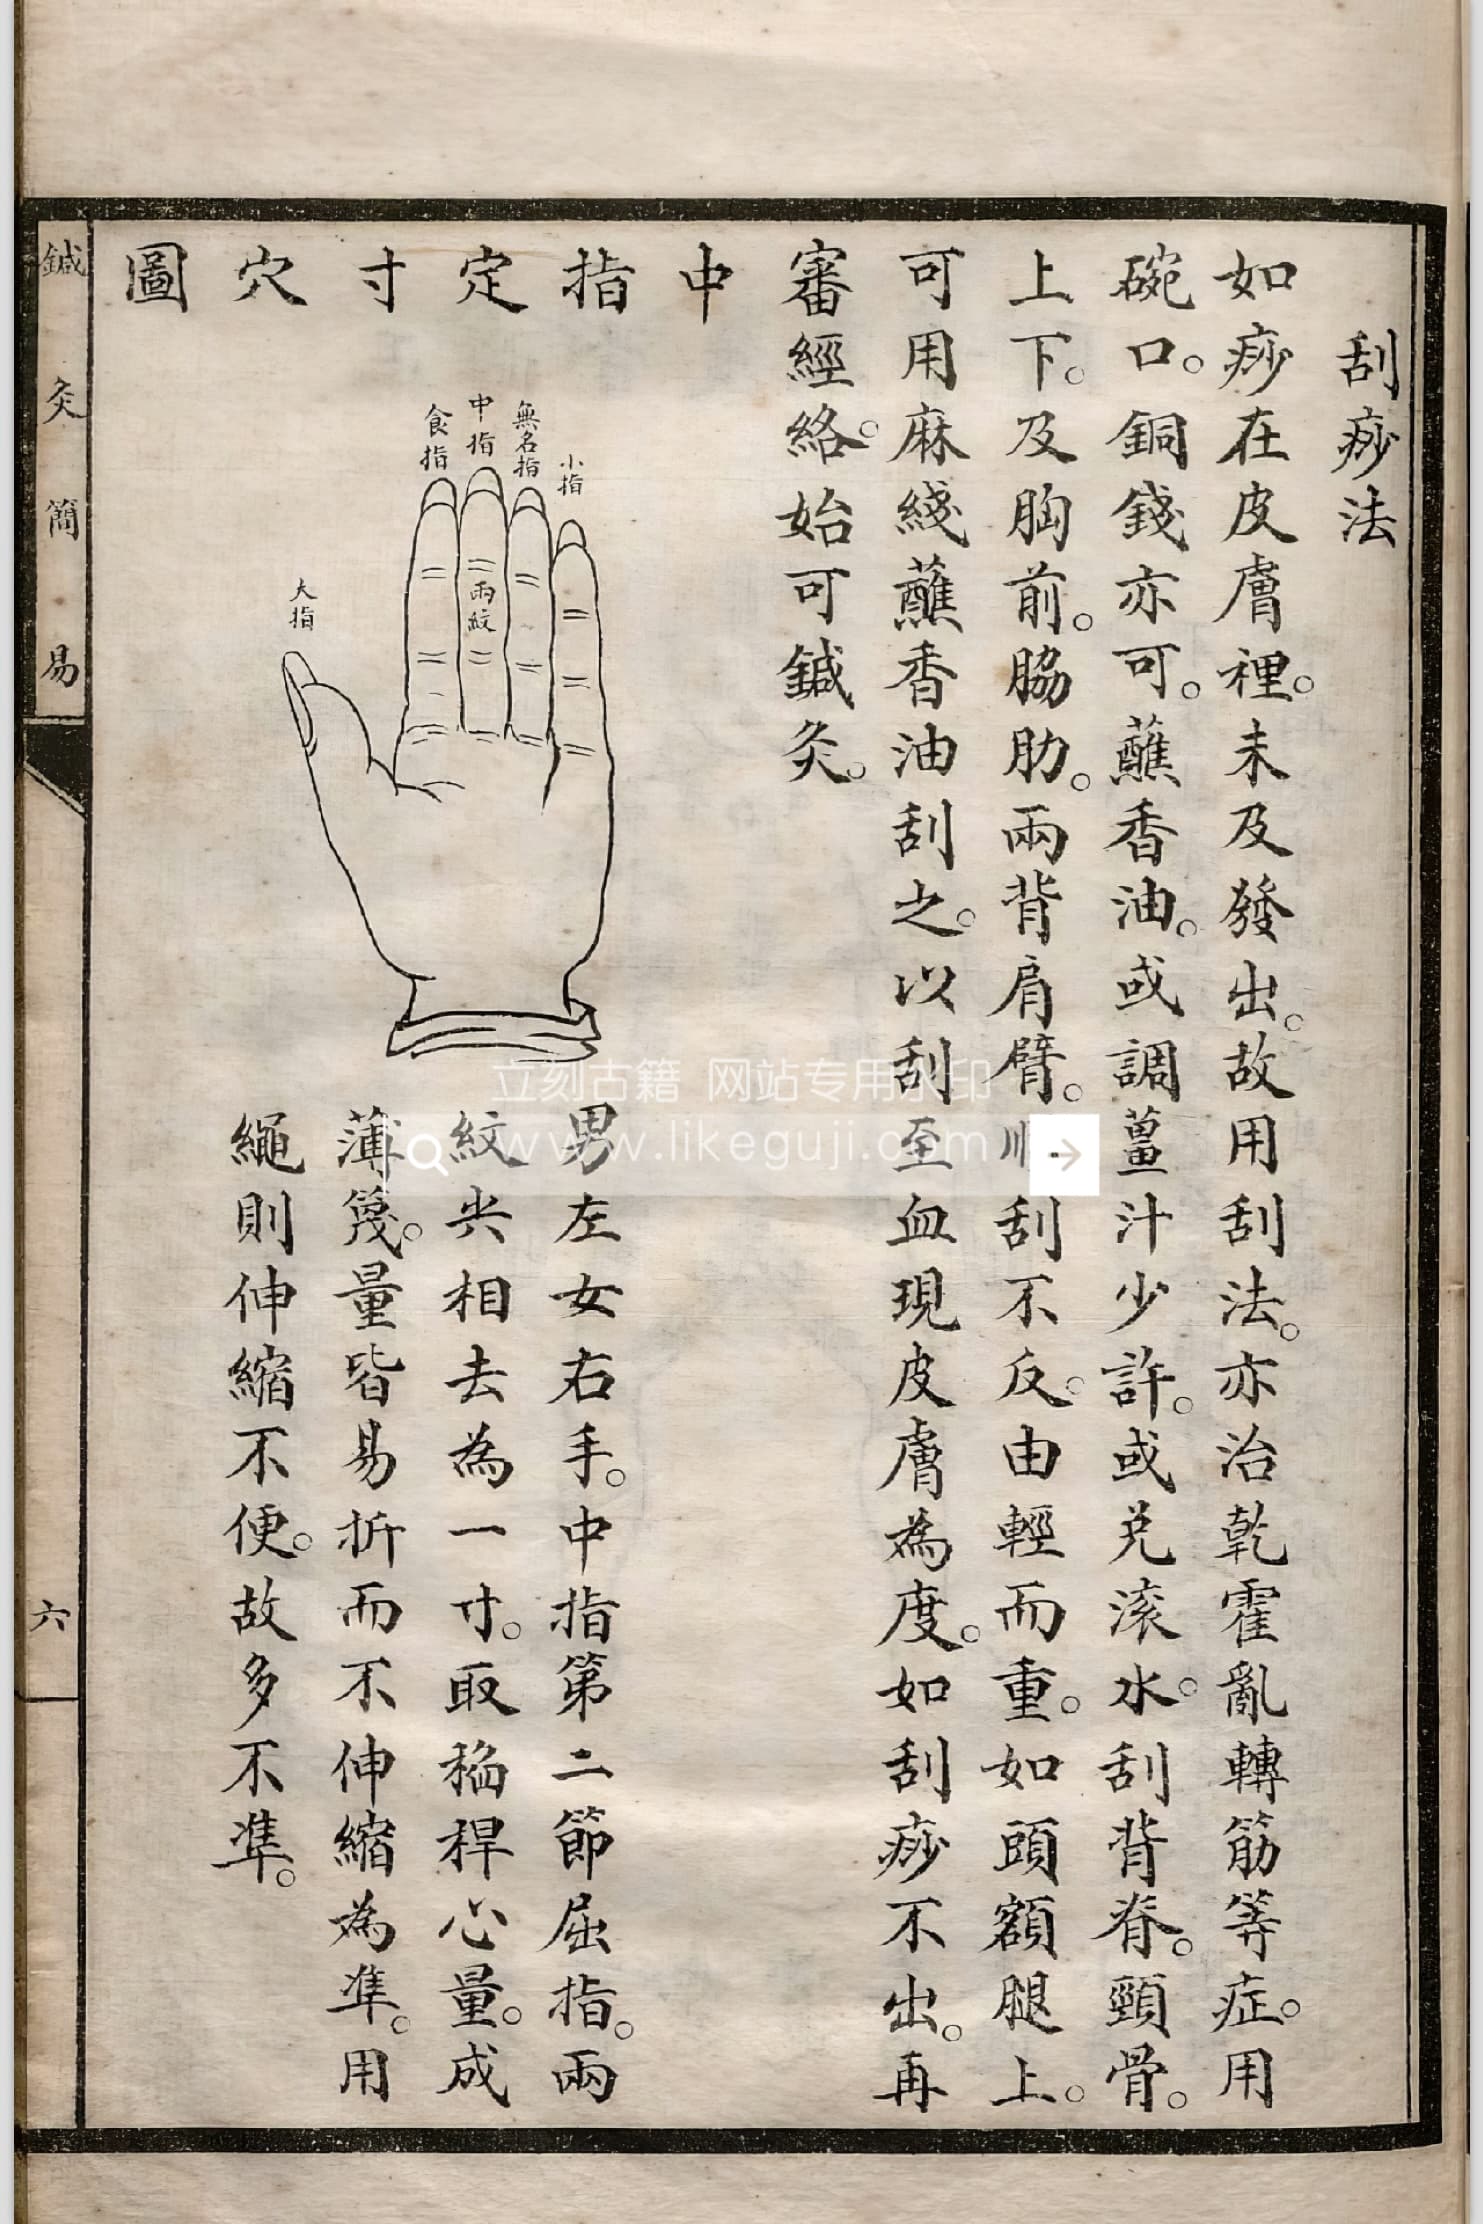 刮痧法
如痧在皮膚裡。未及發出。故用刮法。亦治乾霍亂轉筋等症。用
碗口。銅錢亦可。蘸香油。或調薑汁少許。或兑滚水。刮背脊。頸骨。
上下。及胸前。脇肋。兩背肩臂。順刮不反。由輕而重。如頭額腿上。
可用麻綫蘸香油刮之。以刮至血現皮膚為度。如刮痧不出。再
審經絡。始可鍼灸。
中指定寸穴圖
小指
無名指
中指
食指
大指
兩紋
男左女右手。中指第二節屈指。兩
紋尖相去為一寸。取稻稈心量。或
薄篾。量皆易折而不伸縮為準。用
繩則伸縮不便。故多不準。
鍼灸簡易
六
立刻古籍 网站专用水印
www.likeguji.com